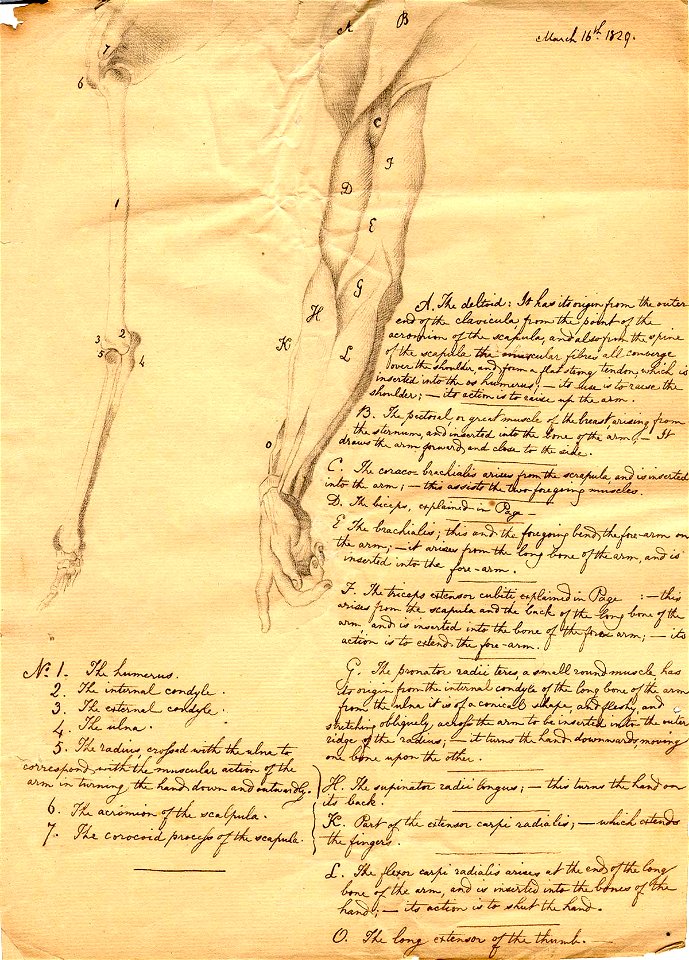 March 16th 1829.
7
6
1
3 2
5 4
A B
C
F
D
E
G
H
K
L
O
A. The deltoid: It has its origin from the outer
end of the clavicula, from the point of the
acromion of the scapula, and also from the spine
of the scapula the muscular fibres all converge
over the shoulder, and form a flat strong tendon, which is
inserted into the os humerus; — its use is to raise the
shoulder; — its action is to raise up the arm.
B. The pectoral, or great muscle of the breast arising from
the sternum, and inserted into the bone of the arm; — It
draws the arm forward, and close to the side.
C. The coraco-brachialis arises from the scrapula, and is inserted
into the arm; — this assists the two foregoing muscles.
D. The biceps, explained in Page —
E The brachialis; this and the foregoing bend, the fore-arm on
the arm; — it arises from the long bone of the arm, and is
inserted into the fore-arm.
F. The triceps extensor cubite explained in Page : — this
arises from the scapula and the back of the long bone of the
arm, and is inserted into the bone of the fore arm; — its
action is to extend the fore-arm.
G. The pronator radii teres, a small round muscle, has
its origin from the internal condyle of the long bone of the arm
from the ulna it is of a conical shape, and fleshy, and
stretching obliquely, across the arm to be inserted into the outer
ridge of the radius; — it turns the hand downwards, moving
one bone upon the other.
H. The supinator radii longus; — this turns the hand on
its back.
K. Part of the extensor carpi radialis; — which extends
the fingers.
L. The flexor carpi radialis arises at the end of the long
bone of the arm, and is inserted into the bones of the
hand; — its action is to shut the hand.
O. The long extensor of the thumb. —
No. 1. The humerus.
2. The internal condyle.
3. The external condyle.
4. The ulna.
5. The radius, crossed with the ulna to
correspond with the muscular action of the
arm in turning the hand down and outwardly.
6. The acromion of the scalpula.
7. The corocoid process of the scapula.